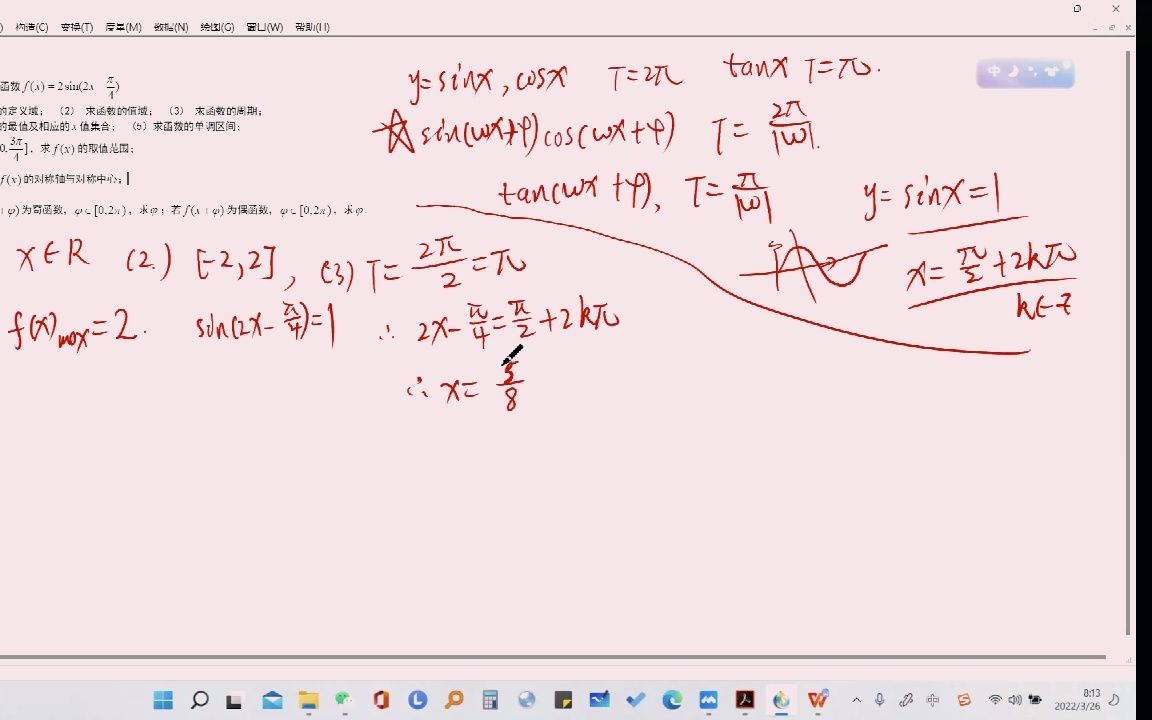 构造(C) 变换(T) 度量(M) 数据(N) 绘图(G) 窗口(W) 帮助(H)
函数 f(x) = 2sin(2x π/4)
的定义域； （2） 求函数的值域； （3） 求函数的周期；
的最值及相应的 x 值集合； （5）求函数的单调区间；
0, 3π/4]，求 f(x) 的取值范围；
f(x) 的对称轴与对称中心；
φ) 为奇函数，φ∈[0,2π)，求φ；若 f(x+φ) 为偶函数，φ∈[0,2π)，求φ.
y=sinx, cosx T=2π tanx T=π.
☆ sin(wx+φ) cos(wx+φ) T= 2π/|w|.
tan(wx+φ), T= π/|w|
y= sinx=1
x= π/2 +2kπ
k∈Z
x∈R (2.) [-2,2], (3) T= 2π/2 =π
f(x)max=2. sin(2x- π/4)=1 ∴ 2x- π/4 = π/2 +2kπ
∴ x= 3/8
中
中
8:13
2022/3/26